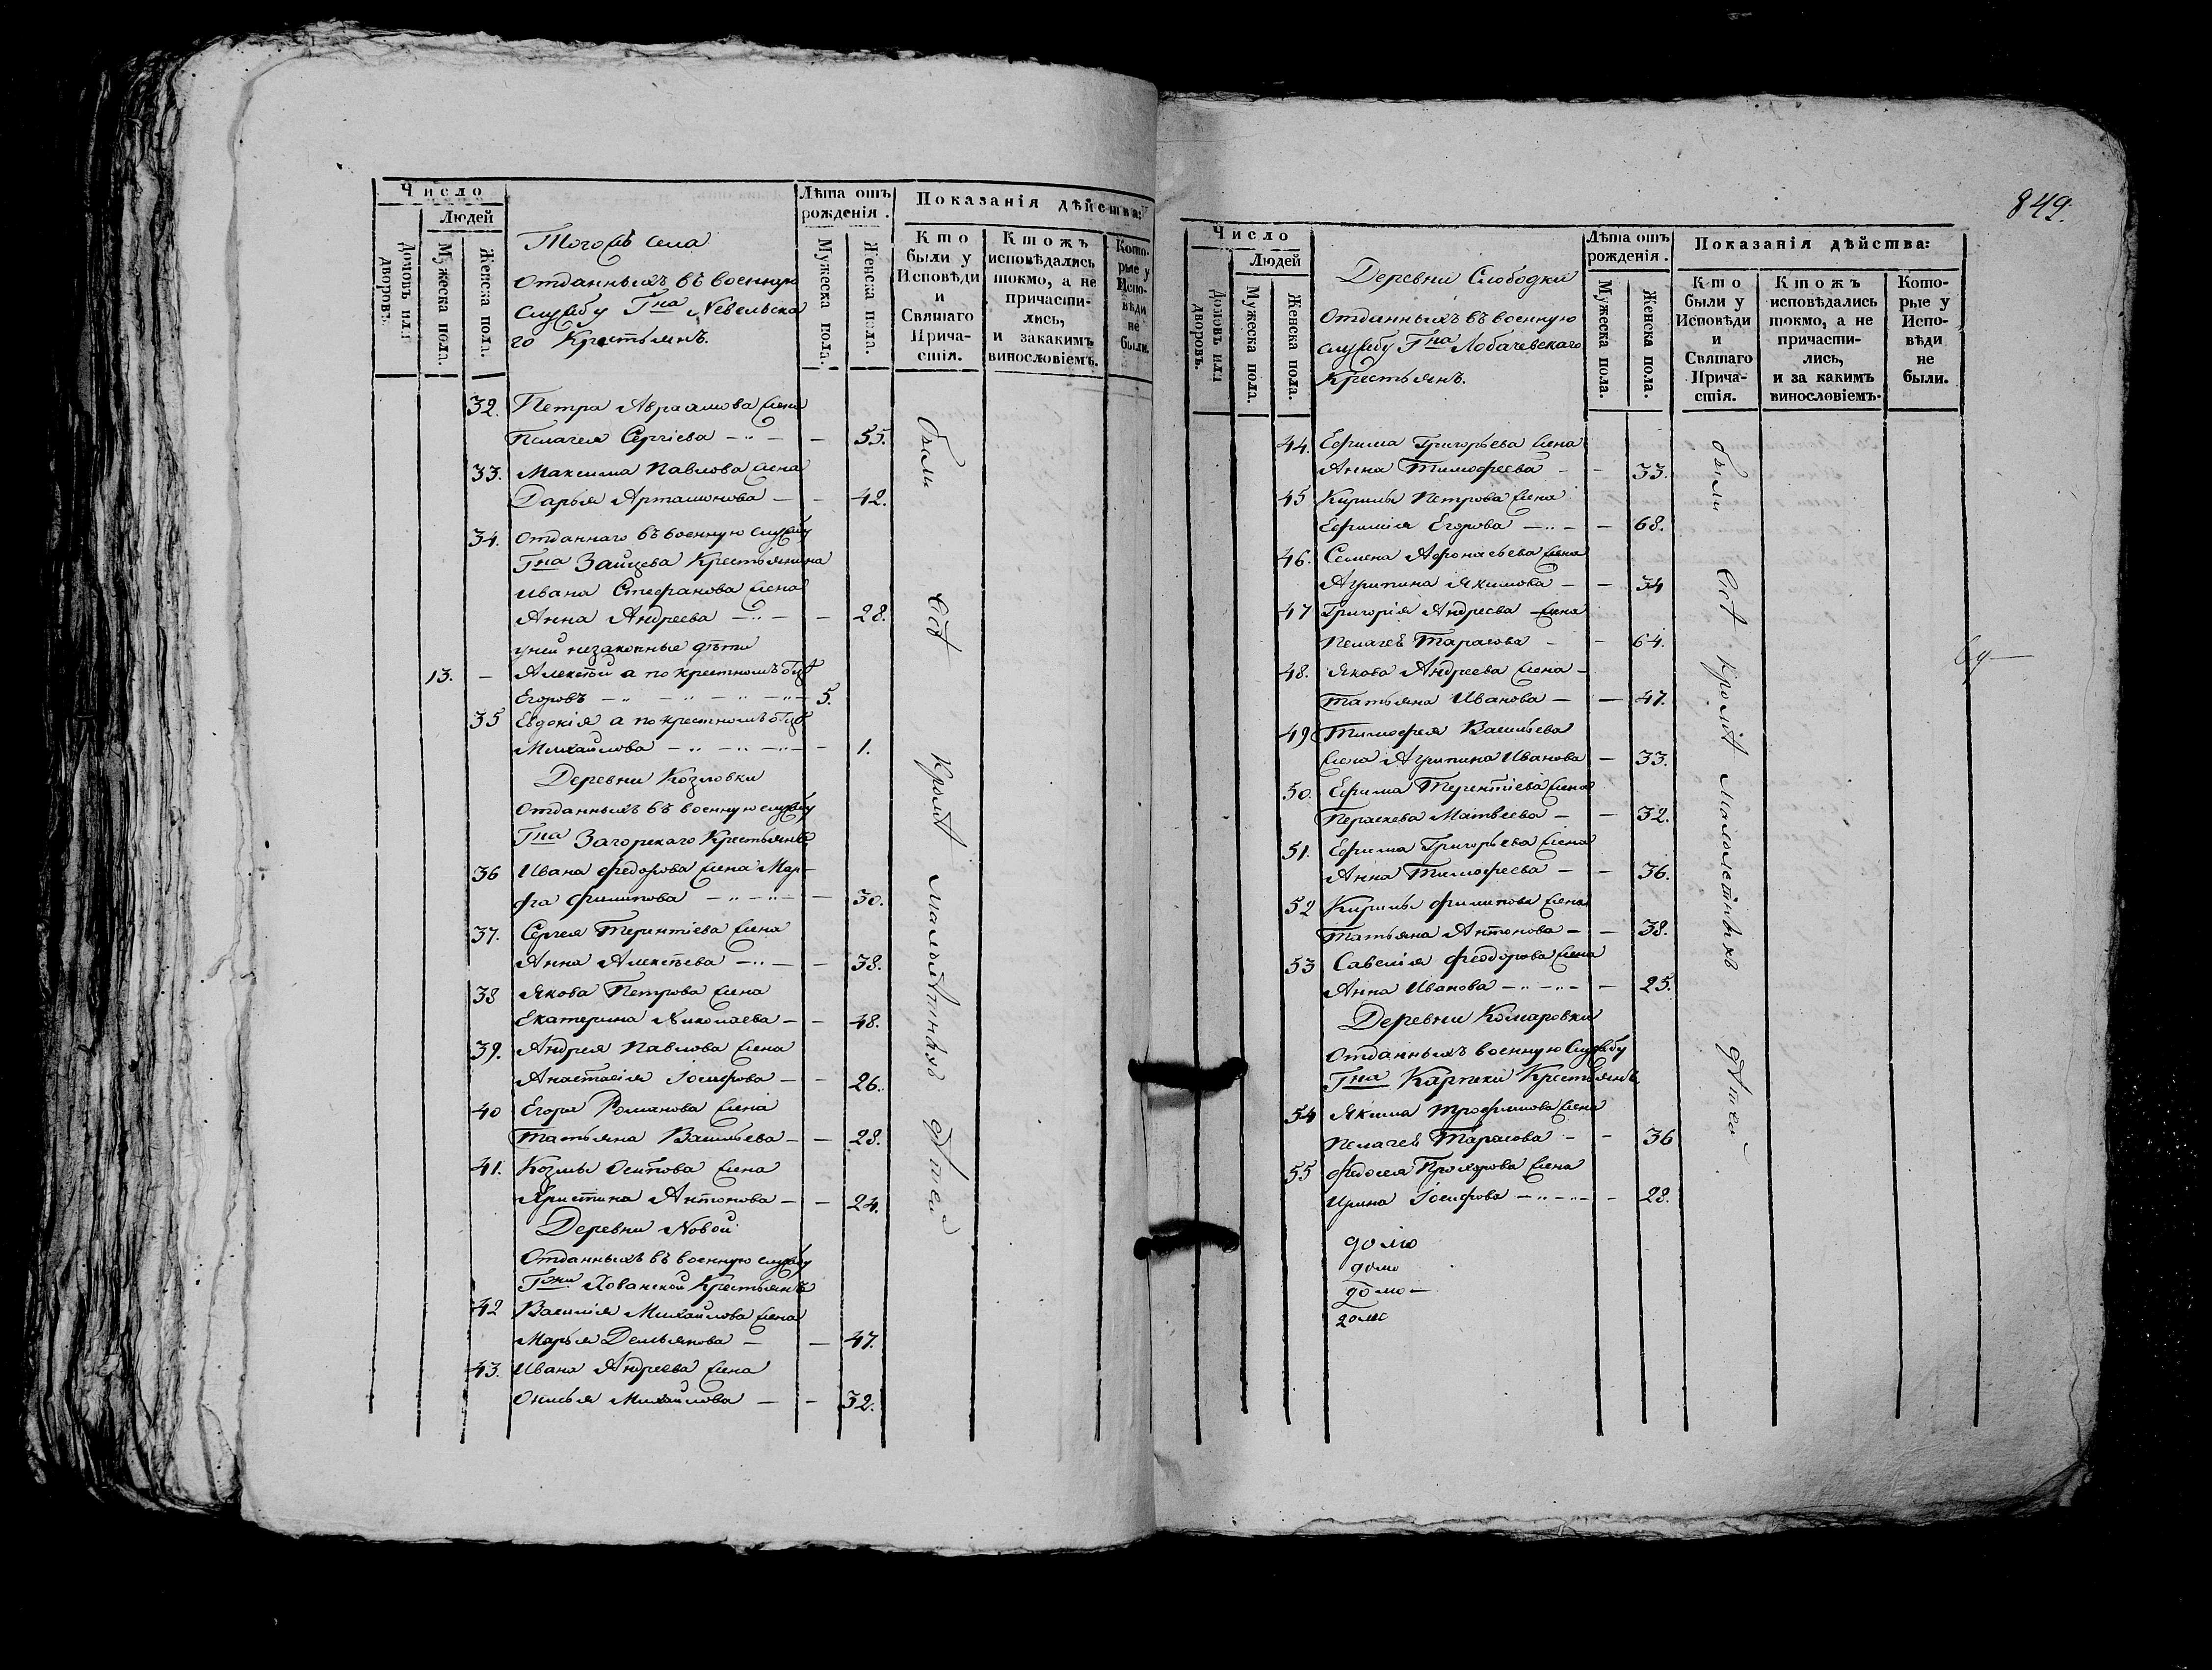 Число
Людей
Домовъ или дворовъ.
Мужеска пола.
Женска пола.
Тогожъ села
отданныхъ въ военную
службу Г<sup>на</sup> Невельска
го Крестьянъ.
Лѣта отъ рожденія.
Мужеска пола.
Женска пола.
Показанія дѣйства:
Кто были у Исповѣди и Святаго Прича-стія.
Ктожъ исповѣдались токмо, а не причасти-лись, и закакимъ винословіемъ.
Кото-рые у Испо-вѣди не были.
32. Петра Авраамова жена
Пелагея Сергіева — 55.
33. Максима Павлова жена
Дарья Артамонова — — 42.
34. отданнаго въ военную службу
Г<sup>на</sup> Зайцева Крестьянина
Ивана Стефанова жена
Анна Андреева — — 28.
у ней незаконные дѣти
13. — Алексѣй а по крестномъ отцѣ
Егоровъ — 5.
35 Евдокія а по крестномъ отцѣ
Михайлова — — 1.
Деревни Козловки
отданныхъ въ военную службу
Г<sup>на</sup> Загорскаго Крестьянъ
36 Ивана Федорова жена Мар-
фа Филипова — — 30.
37. Сергея Терентіева жена
Анна Алексѣева — — 38.
38 Якова Петрова жена
Екатерина Николаева — — 48.
39. Андрея Павлова жена
Анастасія Іосифова — — 26.
40 Егора Романова жена
Татьяна Васильева — — 28.
41. Козмы Осипова жена
Христина Антонова — — 24.
Деревни Новой
Отданныхъ въ военную службу
Г<sup>жи</sup> Хованской Крестьянъ
42 Василія Михайлова жена
Марья Демьянова — — 47.
43. Ивана Андреева жена
Михайлова — — 32.
были всѣ кромѣ малолѣтныхъ дѣтей
849.
Число
Людей
Домовъ или дворовъ.
Мужеска пола.
Женска пола.
Деревни Слободки
Отданныхъ въ военную
службу Г<sup>на</sup> Лобачевскаго
Крестьянъ.
Лѣта отъ рожденія.
Мужеска пола.
Женска пола.
Показанія дѣйства:
Кто были у Исповѣди и Святаго Прича-стія.
Ктожъ исповѣдались токмо, а не причасти-лись, и за какимъ винословіемъ.
Кото-рые у Испо-вѣди не были.
44. Ефима Григорьева жена
Анна Тимофеева — — 33.
45 Кирилы Петрова жена
Ефимія Егорова — — 68.
46. Семена Афонасьева жена
Агрипина Якимова — — 34
47 Григорія Андреева жена
Пелагея Тарасова — — 64.
48. Якова Андреева жена —
Татьяна Иванова — — 47.
49 Тимофея Васильева
жена Агрипина Иванова — 33.
50. Ефима Терентіева жена
Параскева Матвеева — — 32.
51. Ефима Григорьева жена
Анна Тимофеева — — 36.
52 Кирилы Филипова жена
Татьяна Антонова — — 38.
53 Савелія Феодорова жена
Анна Иванова — — 25.
Деревни Комаровки
Отданныхъ военную Службу
Г<sup>на</sup> Крестьянъ
54 Якима Трофимова жена
Пелагея Тарасова — — 36
55 Федосея Прохорова жена
Ирина Іосифова — — 28.
были всѣ кромѣ малолетныхъ дѣтей.